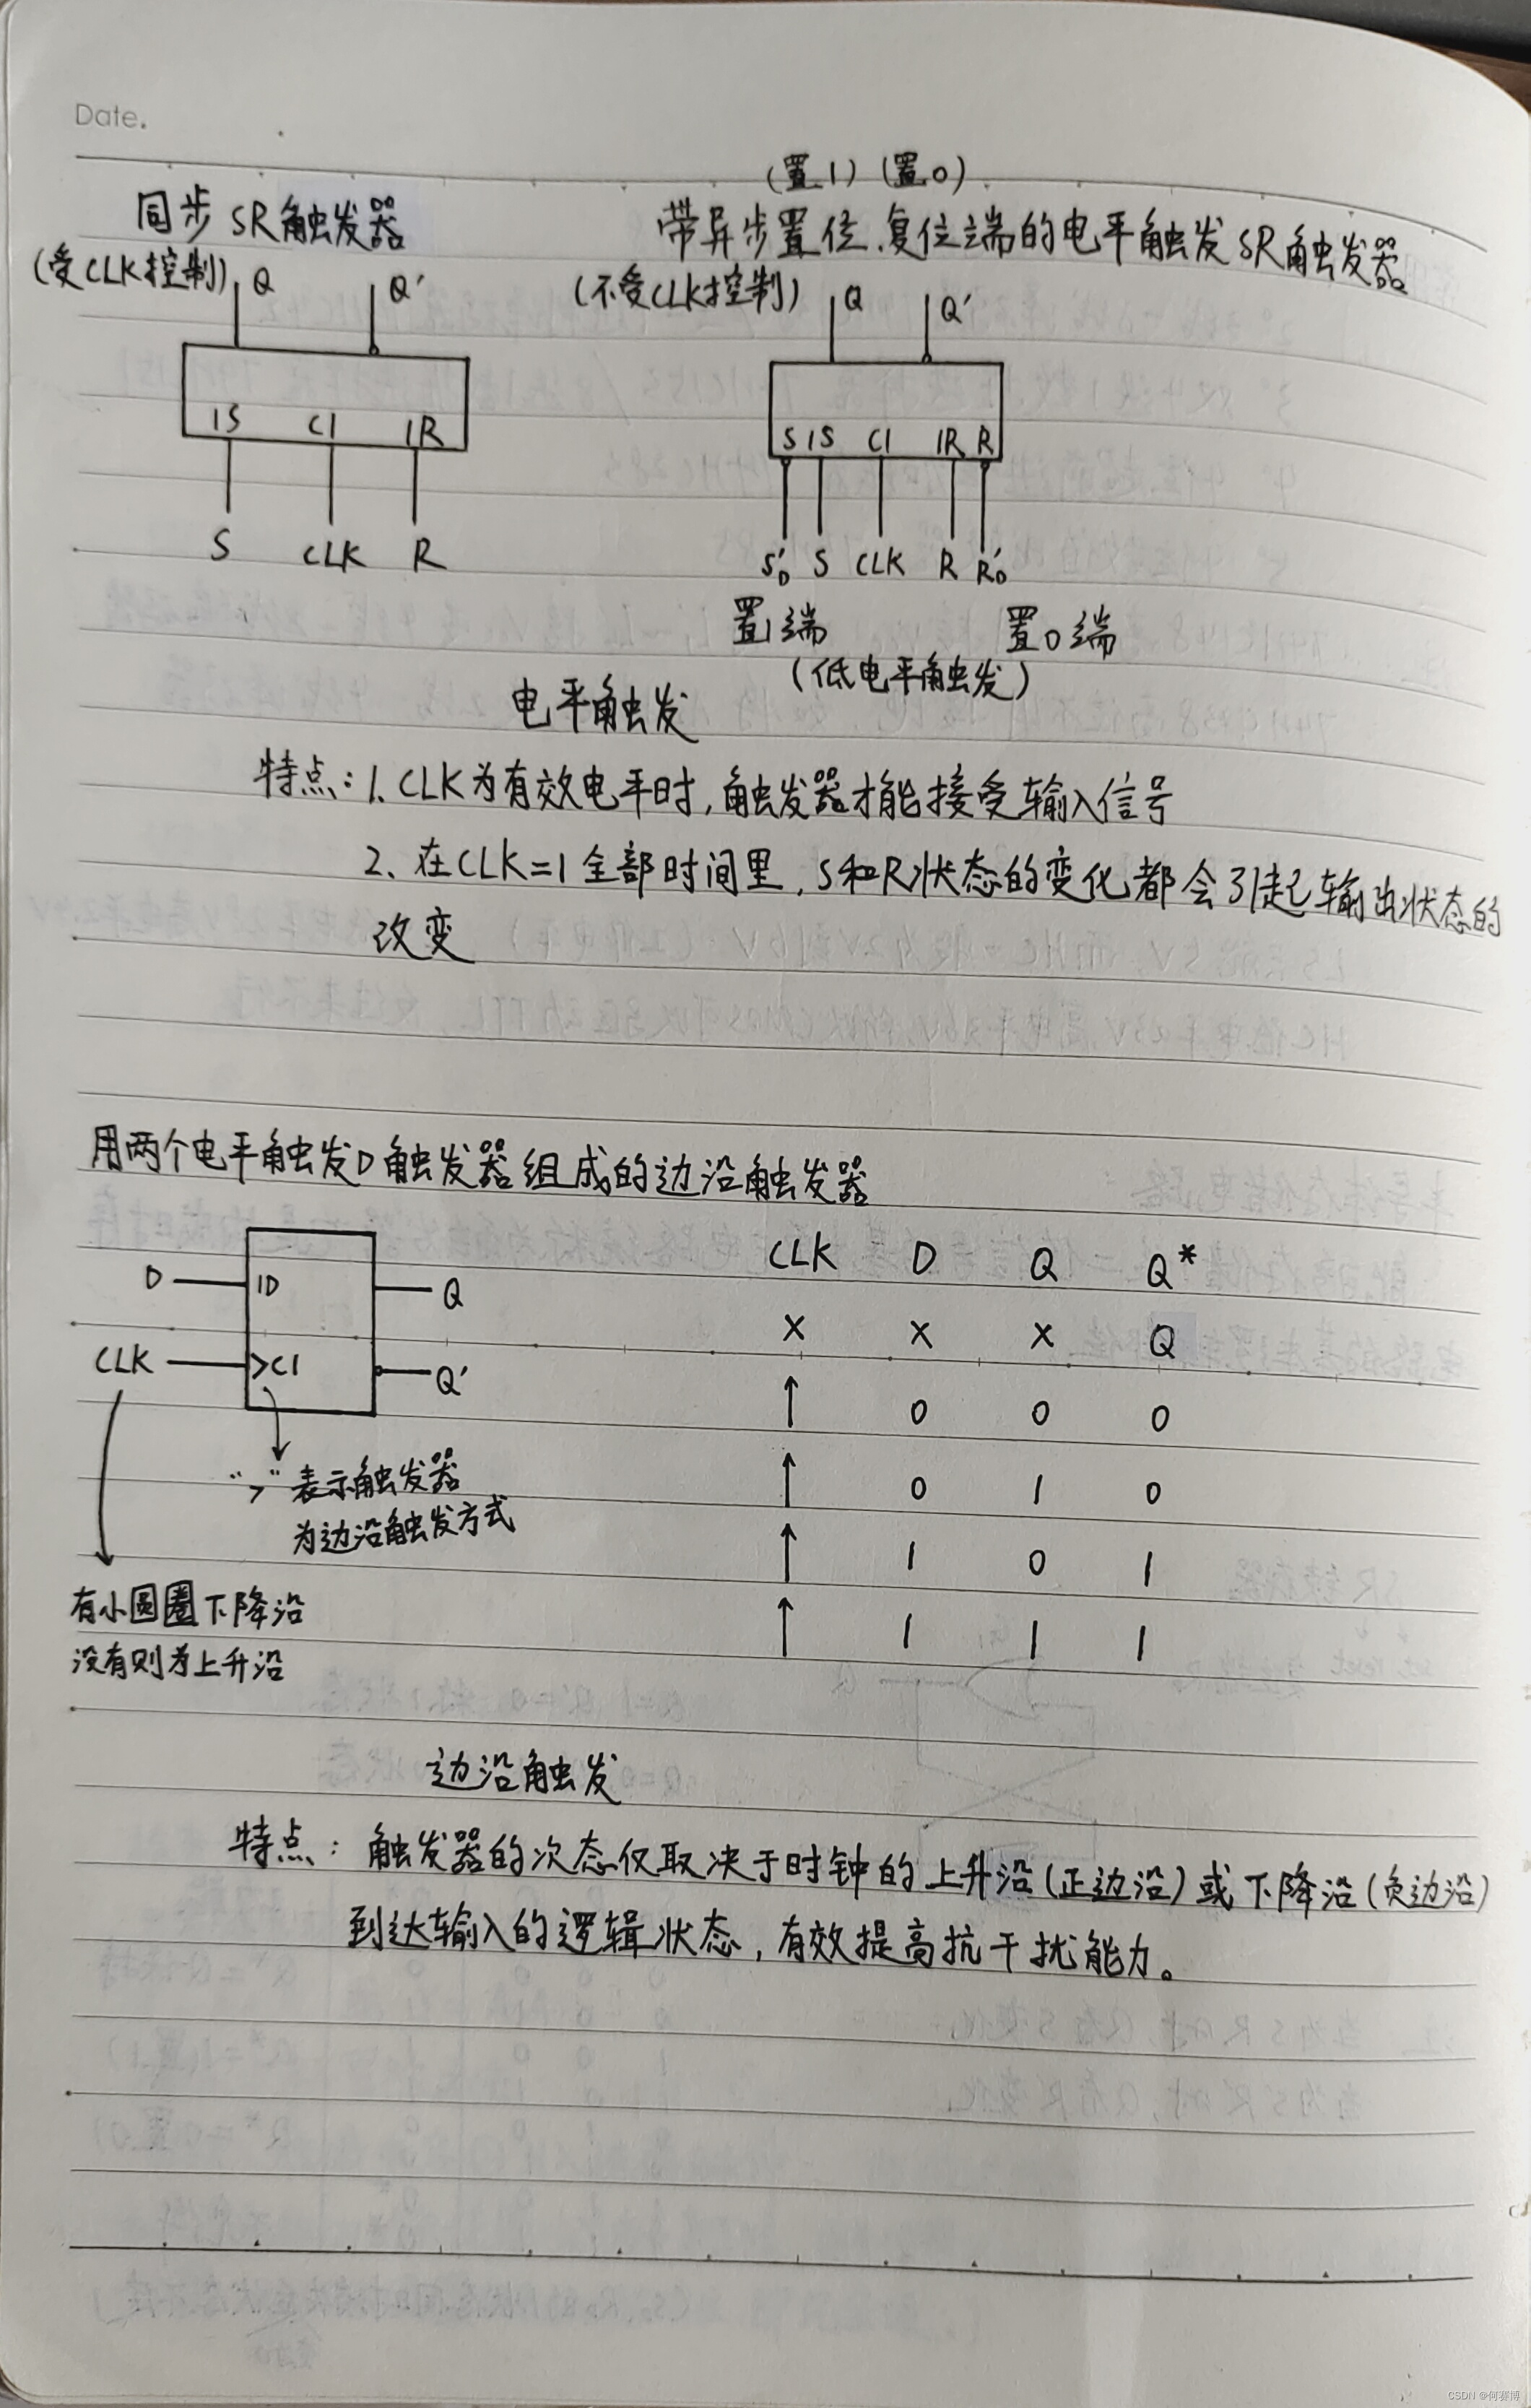 Date.
(置1) (置0)
同步 SR触发器
带异步置位、复位端的电平触发SR触发器
(受CLK控制) Q Q'
(不受CLK控制) Q Q'
1S C1 1R
S 1S C1 1R R
S CLK R
S'D S CLK R R'D
置1端 置0端
(低电平触发)
电平触发
特点: 1. CLK为有效电平时, 触发器才能接受输入信号
2、在CLK=1全部时间里, S和R状态的变化都会引起输出状态的
改变
用两个电平触发D触发器组成的边沿触发器
D 1D Q
CLK >C1 Q'
">"表示触发器
为边沿触发方式
有小圆圈下降沿
没有则为上升沿
CLK D Q Q*
X X X Q
↑ 0 0 0
↑ 0 1 0
↑ 1 0 1
↑ 1 1 1
边沿触发
特点: 触发器的次态仅取决于时钟的上升沿(正边沿)或下降沿(负边沿)
到达输入的逻辑状态, 有效提高抗干扰能力。
CSDN @何赛博